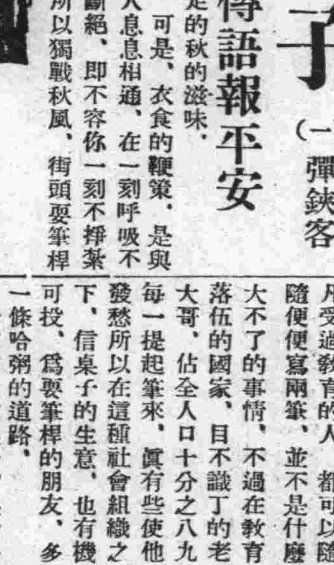 子
（一
彈鋏客
傳語報平安
走的秋的滋味．
可是、衣食的鞭策．是與
人息息相通、在一刻呼吸不
斷絕、即不容你一刻不掙紮
所以獨戰秋風、街頭耍筆桿
凡受過教育的人 都可以隨
隨便便寫兩筆、並不是什麼
大不了的事情、不過在教育
落伍的國家、目不識丁的老
大哥、佔全人口十分之八九
每一提起筆來、眞有些使他
發愁所以在這種社會組織之
下、信桌子的生意、也有機
可投、爲耍筆桿的朋友、多
一條哈粥的道路、